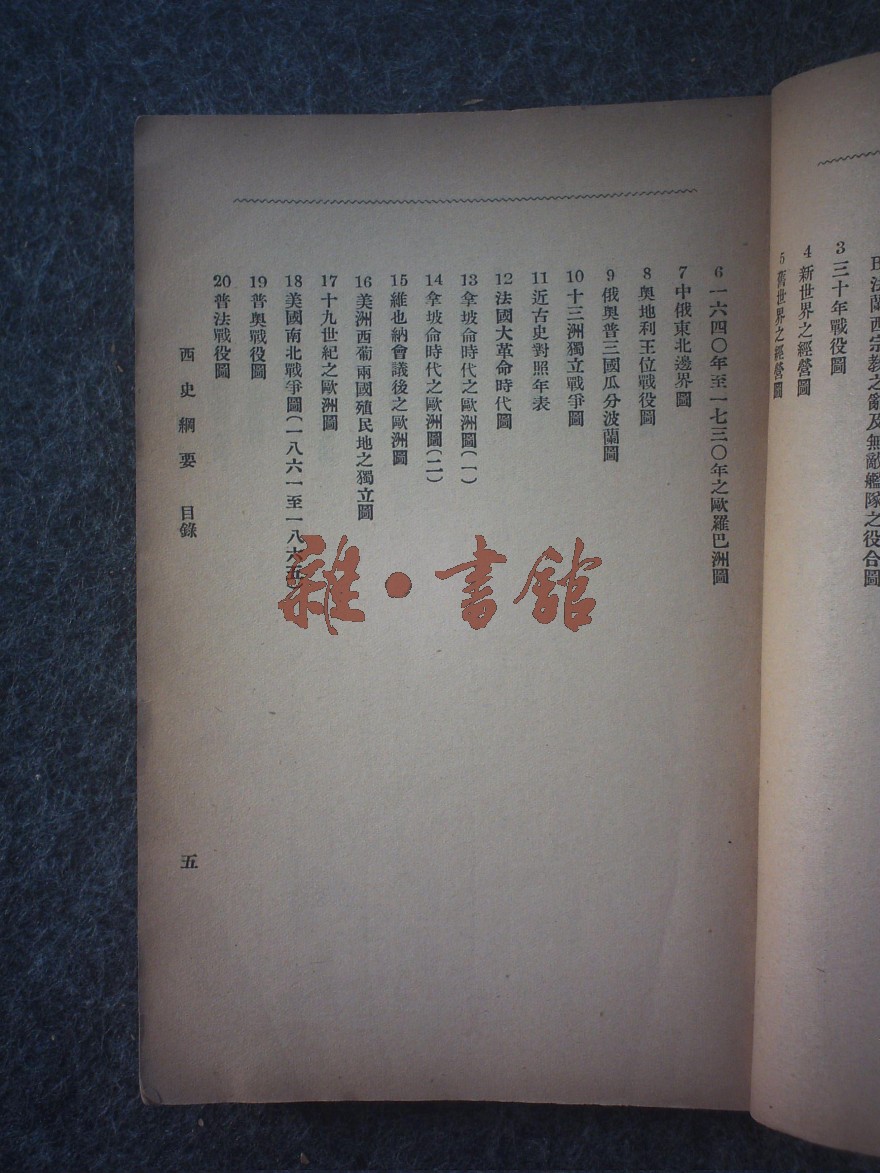 法蘭西宗教之亂及無敵艦隊之役合圖
3 三十年戰役圖
4 新世界之經營圖
5 舊世界之經營圖
6 一六四〇年至一七三〇年之歐羅巴洲圖
7 中俄東北邊界圖
8 奧地利王位戰役圖
9 俄奧普三國瓜分波蘭圖
10 十三洲獨立戰爭圖
11 近古史對照年表
12 法國大革命時代圖
13 拿坡侖時代之歐洲圖(一)
14 拿坡侖時代之歐洲圖(二)
15 維也納會議後之歐洲圖
16 美洲西葡兩國殖民地之獨立圖
17 十九世紀之歐洲圖
18 美國南北戰爭圖(一八六一至一八六五)
19 普奧戰役圖
20 普法戰役圖
西史綱要 目錄
五
雜·書館